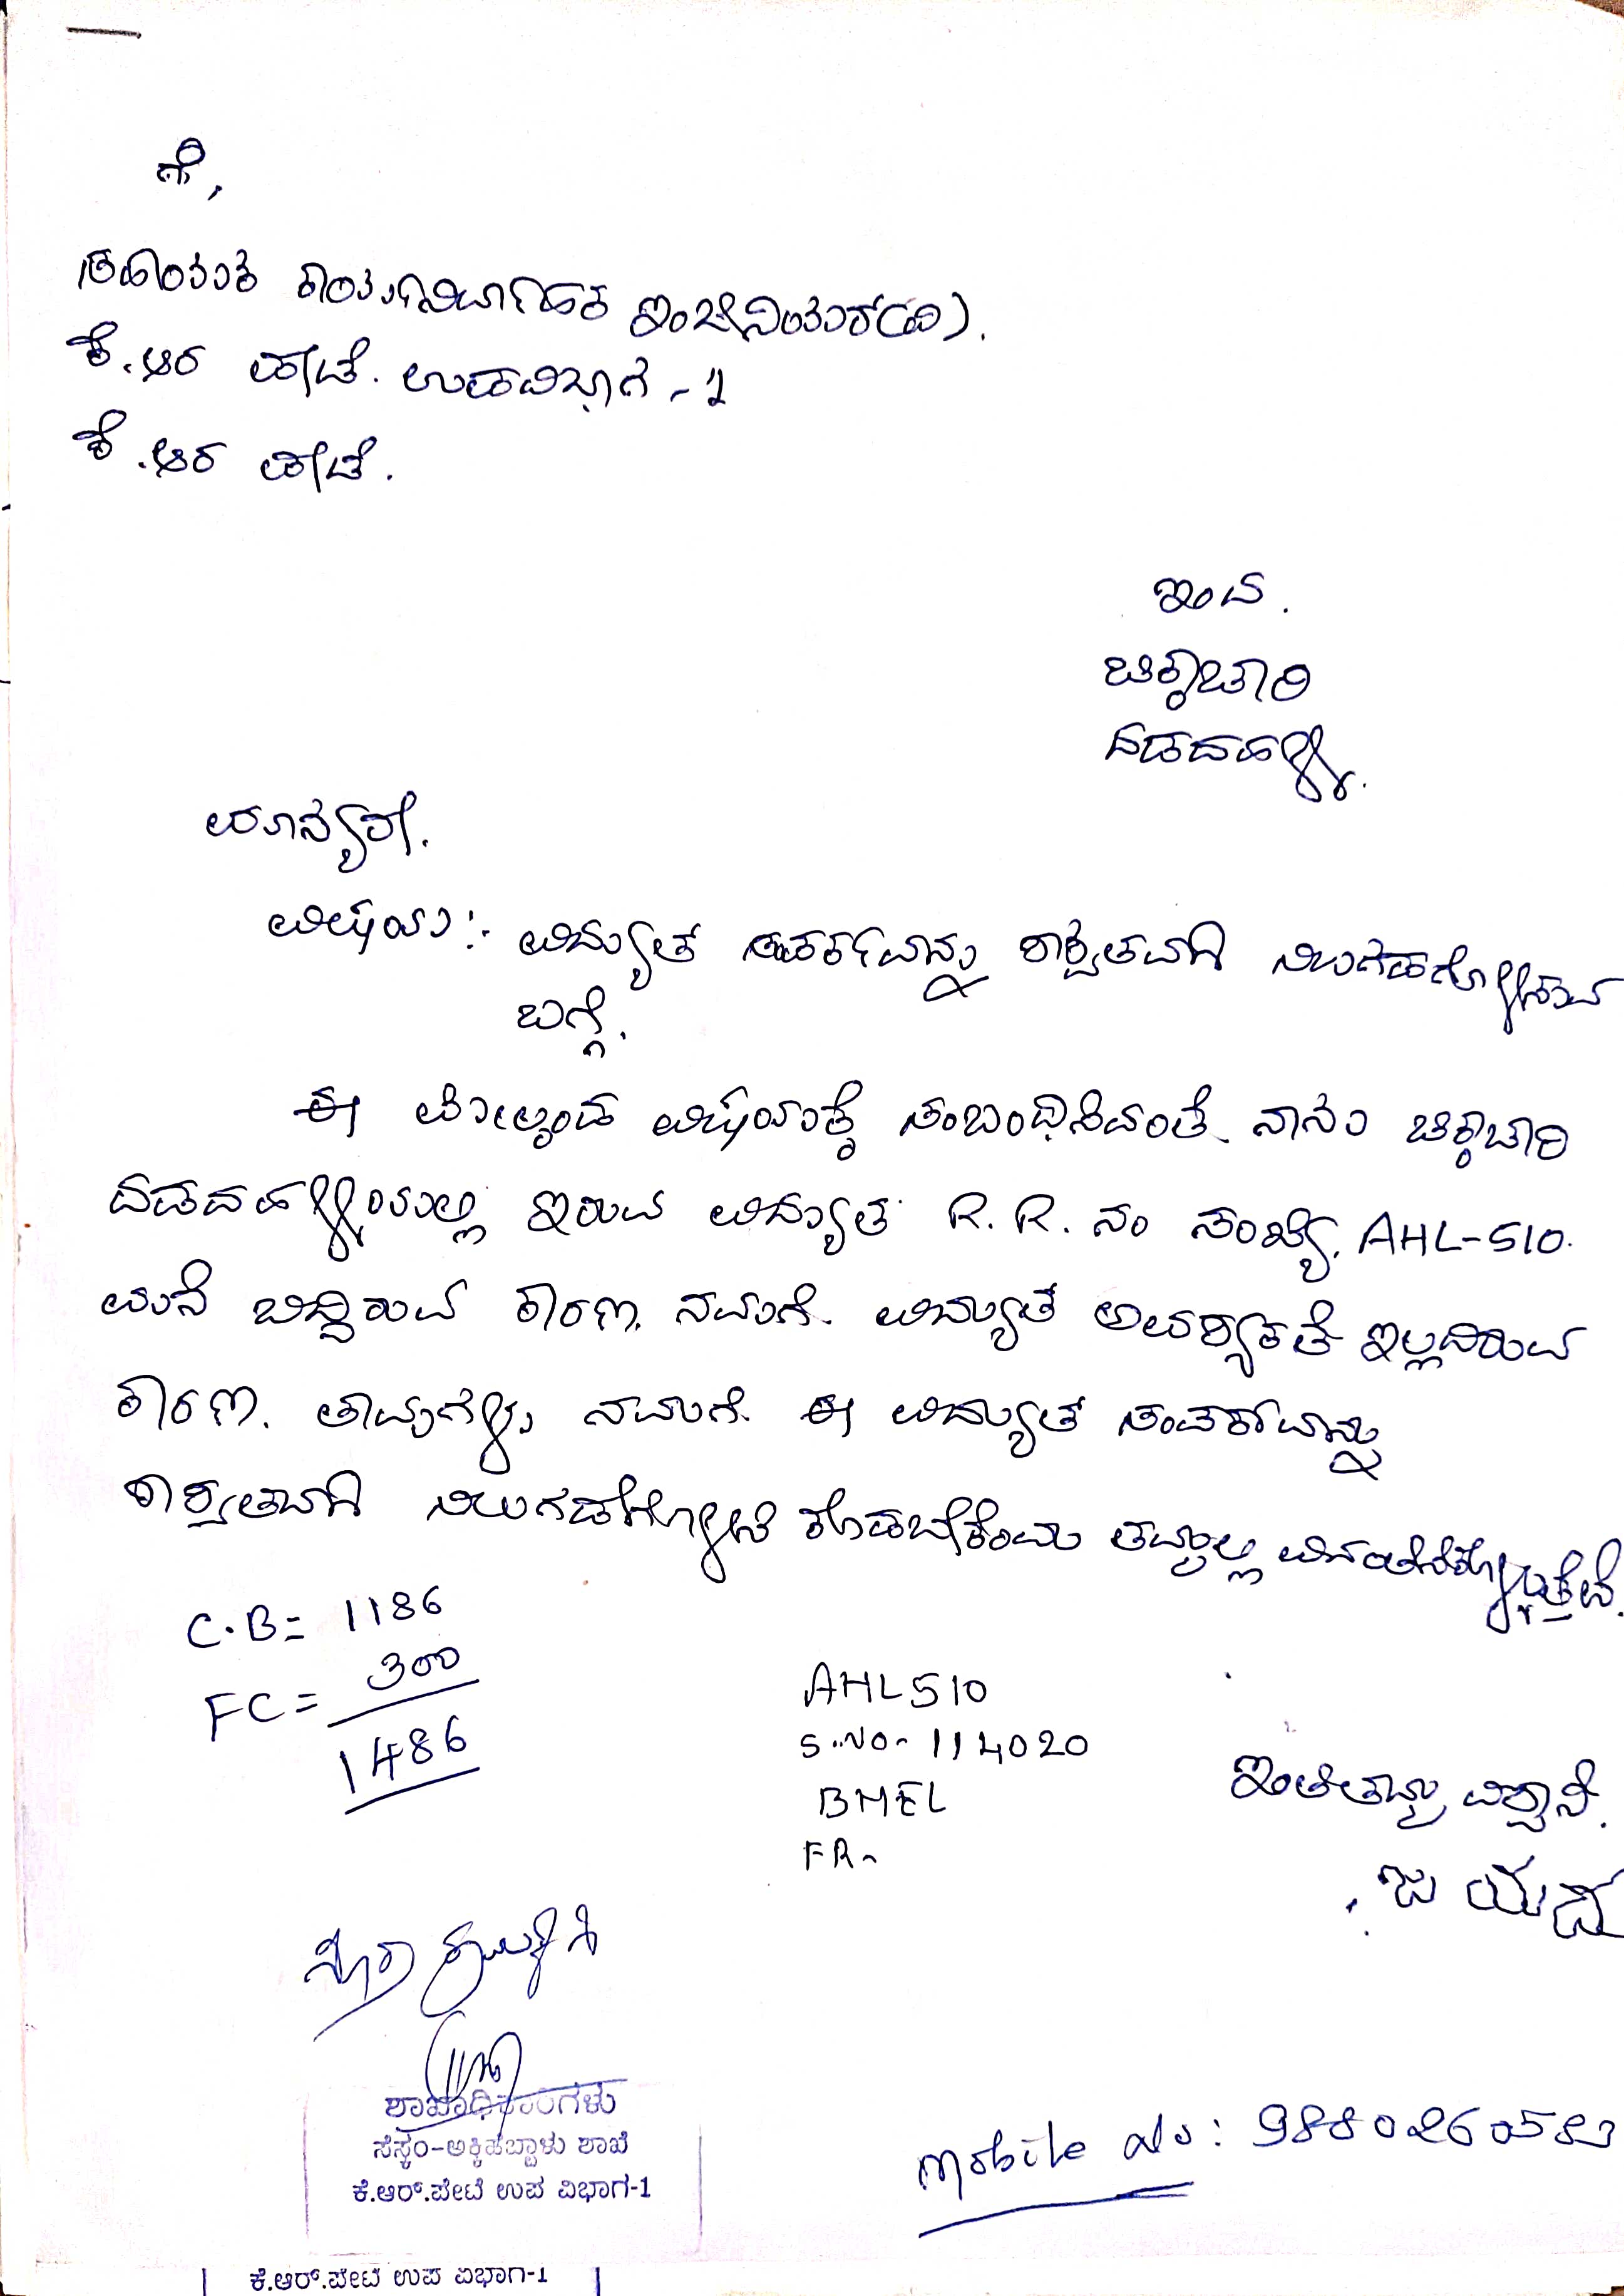 ಗೆ,
ಸಹಾಯಕ ಕಾರ್ಯನಿರ್ವಾಹಕ ಇಂಜಿನಿಯರ್(ವಿ).
ಕೆ.ಆರ ಪೇಟೆ. ಉಪವಿಭಾಗ - 1
ಕೆ.ಆರ ಪೇಟೆ.
ಇಂದ.
ಚಿಕ್ಕಾಚಾರಿ
ವಡದಹಳ್ಳಿ.
ಮಾನ್ಯರೇ.
ವಿಷಯ:- ವಿದ್ಯುತ ಸಂಪರ್ಕವನ್ನು ಶಾಶ್ವತವಾಗಿ ನಿಲುಗಡೆಗೊಳಿಸುವ
ಬಗ್ಗೆ.
ಈ ಮೇಲ್ಕಂಡ ವಿಷಯಕ್ಕೆ ಸಂಬಂಧಿಸಿದಂತೆ ನಾನು ಚಿಕ್ಕಾಚಾರಿ
ವಡದಹಳ್ಳಿಯಲ್ಲಿ ಇರುವ ವಿದ್ಯುತ R.R. ನಂ ಸಂಖ್ಯೆ. AHL-510.
ಮನೆ ಬಿದ್ದಿರುವ ಕಾರಣ. ನಮಗೆ. ವಿದ್ಯುತ ಅವಶ್ಯಕತೆ ಇಲ್ಲದಿರುವ
ಕಾರಣ. ತಾವುಗಳು ನಮಗೆ. ಈ ವಿದ್ಯುತ ಸಂಪರ್ಕವನ್ನು
ಶಾಶ್ವತವಾಗಿ ನಿಲುಗಡೆಗೊಳಿಸಿ ಕೊಡಬೇಕೆಂದು ತಮ್ಮಲ್ಲಿ ವಿನಂತಿಸಿಕೊಳ್ಳುತ್ತೇವೆ.
C.B= 1186
FC= 300
1486
AHL510
S.No- 114020
BHEL
FR-
ಇಂತಿತಮ್ಮ ವಿಶ್ವಾಸಿ.
ಜಯಮ್ಮ
ಶಾಖಾಧಿಕಾರಿಗಳು
ಸೆಸ್ಕಂ-ಅಕ್ಕಿಹೆಬ್ಬಾಳು ಶಾಖೆ
ಕೆ.ಆರ್.ಪೇಟೆ ಉಪ ವಿಭಾಗ-1
Mobile No: 9880260583
ಕೆ.ಆರ್.ಪೇಟೆ ಉಪ ವಿಭಾಗ-1